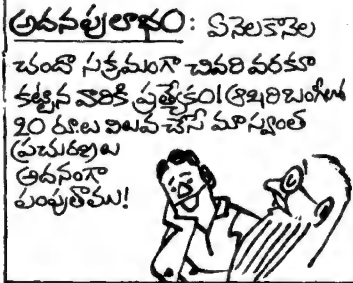 అదనపు లాభం : ఏనెలకానెల
చందా సక్రమంగా చివరి వరకూ
కట్టిన వారికి ప్రత్యేకం! ఆఖరి బంగీలో
20 రూ.ల విలువ చేసే మా స్వంత
ప్రచురణలు
అదనంగా
పంపుతాము!